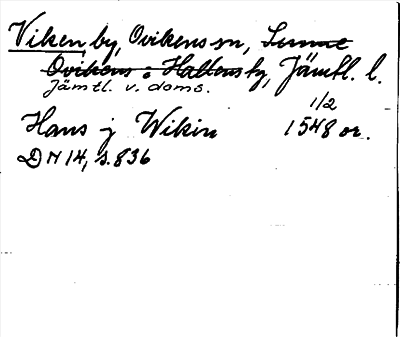 Viken, by, Ovikens sn, Sunne
Ovikens o Hallens ty, Jämtl. l.
Jämtl. v. doms.
1/2
Hans j Wikin 1548 or.
DN 14, s. 836